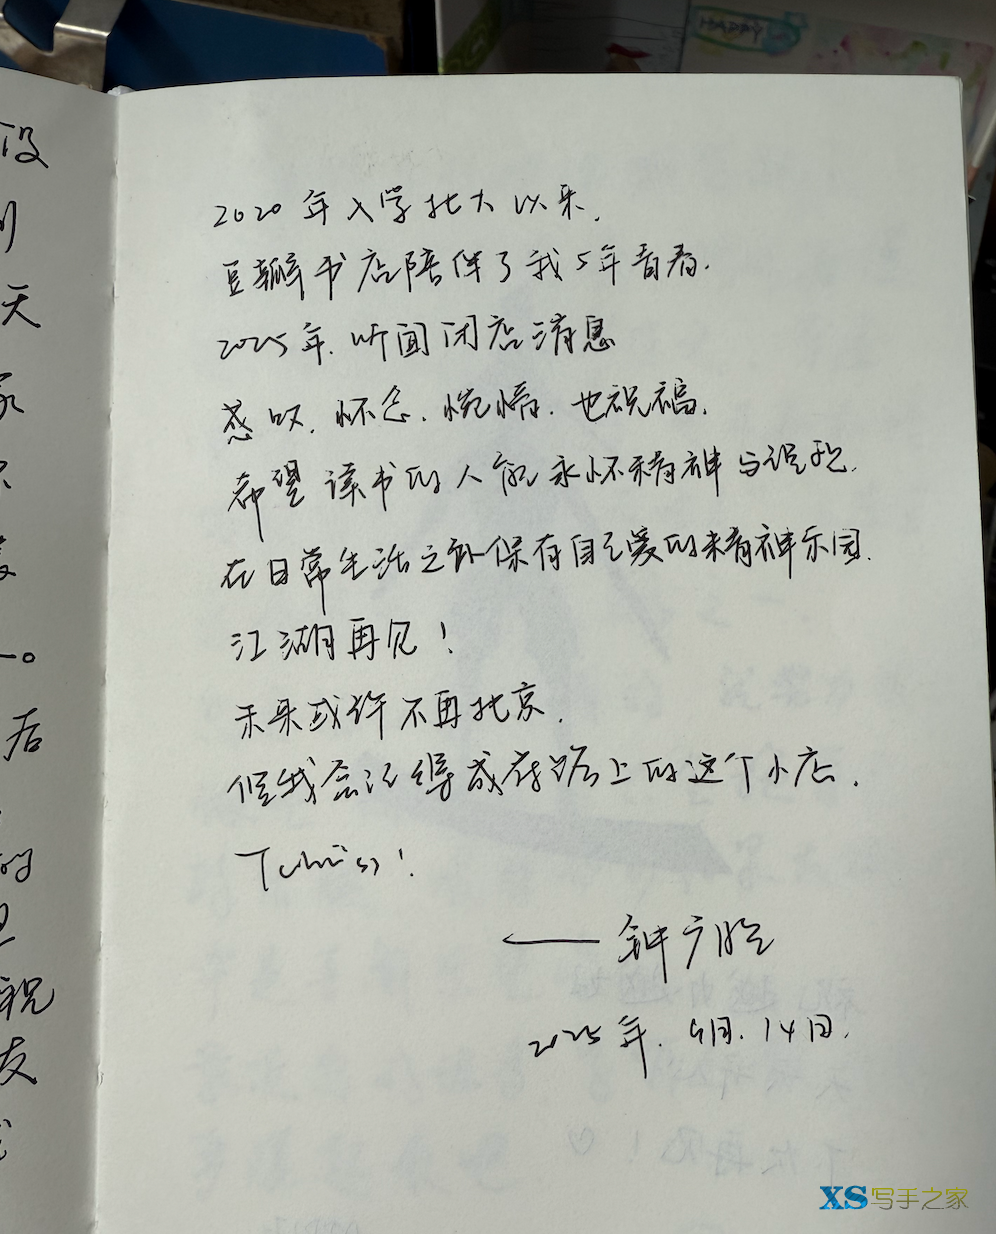 2020年入学北大以来,
豆瓣书店陪伴了我5年青春.
2025年.听闻闭店消息
感叹.怀念.惋惜.也祝福.
希望读书的人能永怀精神与
在日常生活之外保有自己爱的精神乐园.
江湖再见!
未来或许不再北京.
但我会记得成府路上的这个小店.
——钟广
2025年.9月.14日.
没
天
一。
后
的
祝
友
XS写手之家